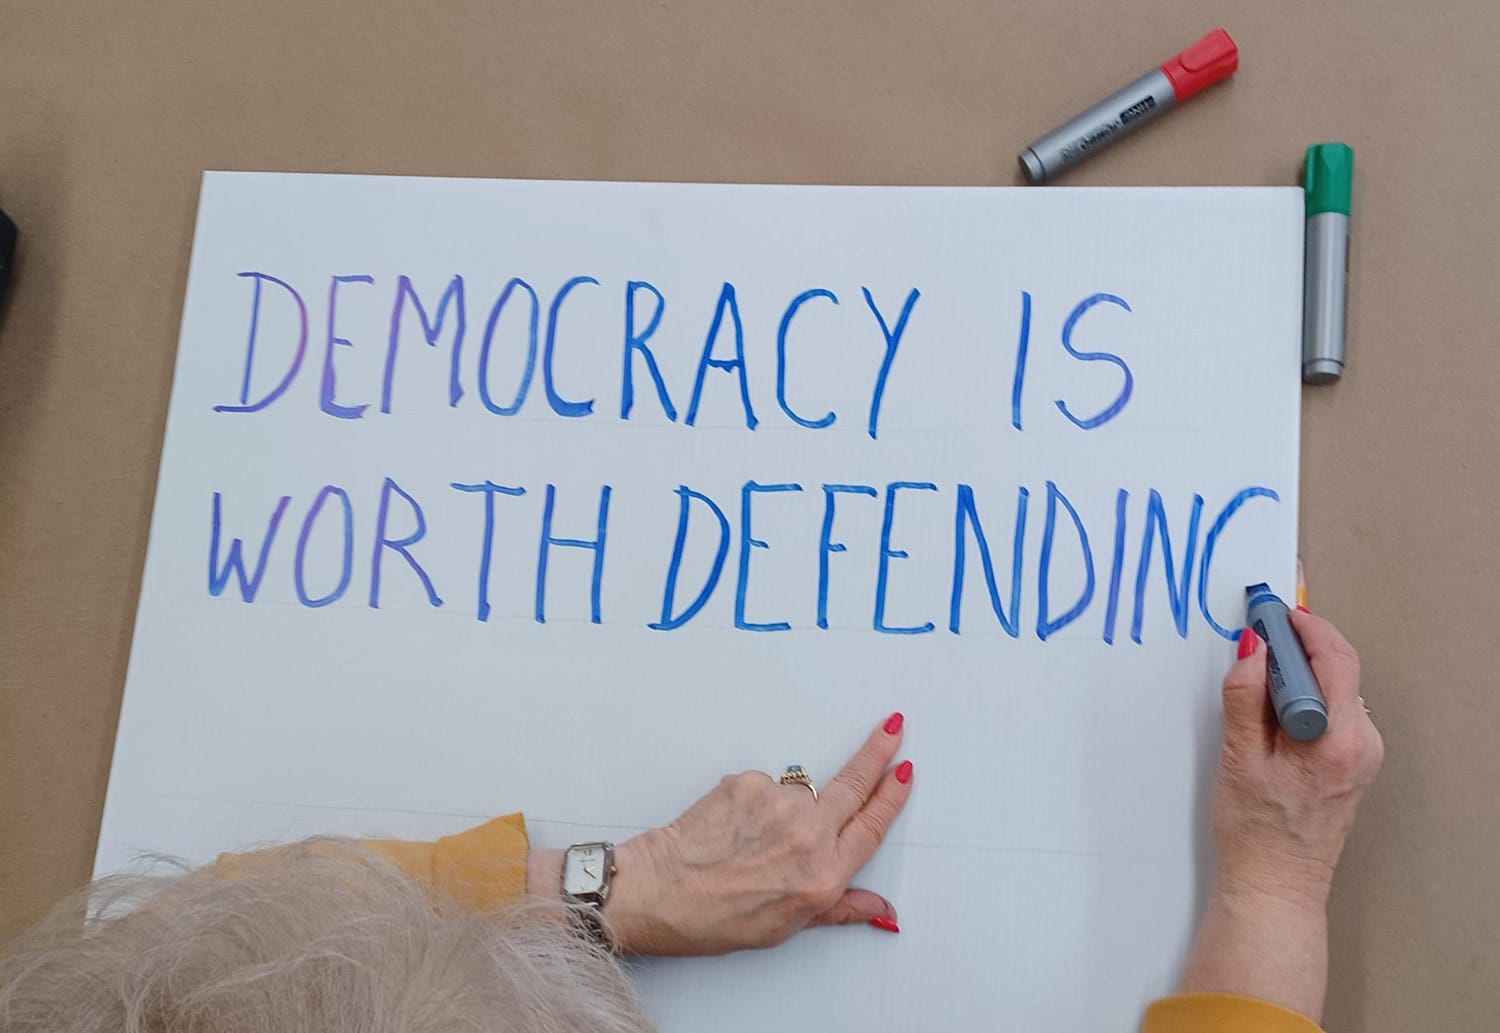 DEMOCRACY IS
WORTH DEFENDING